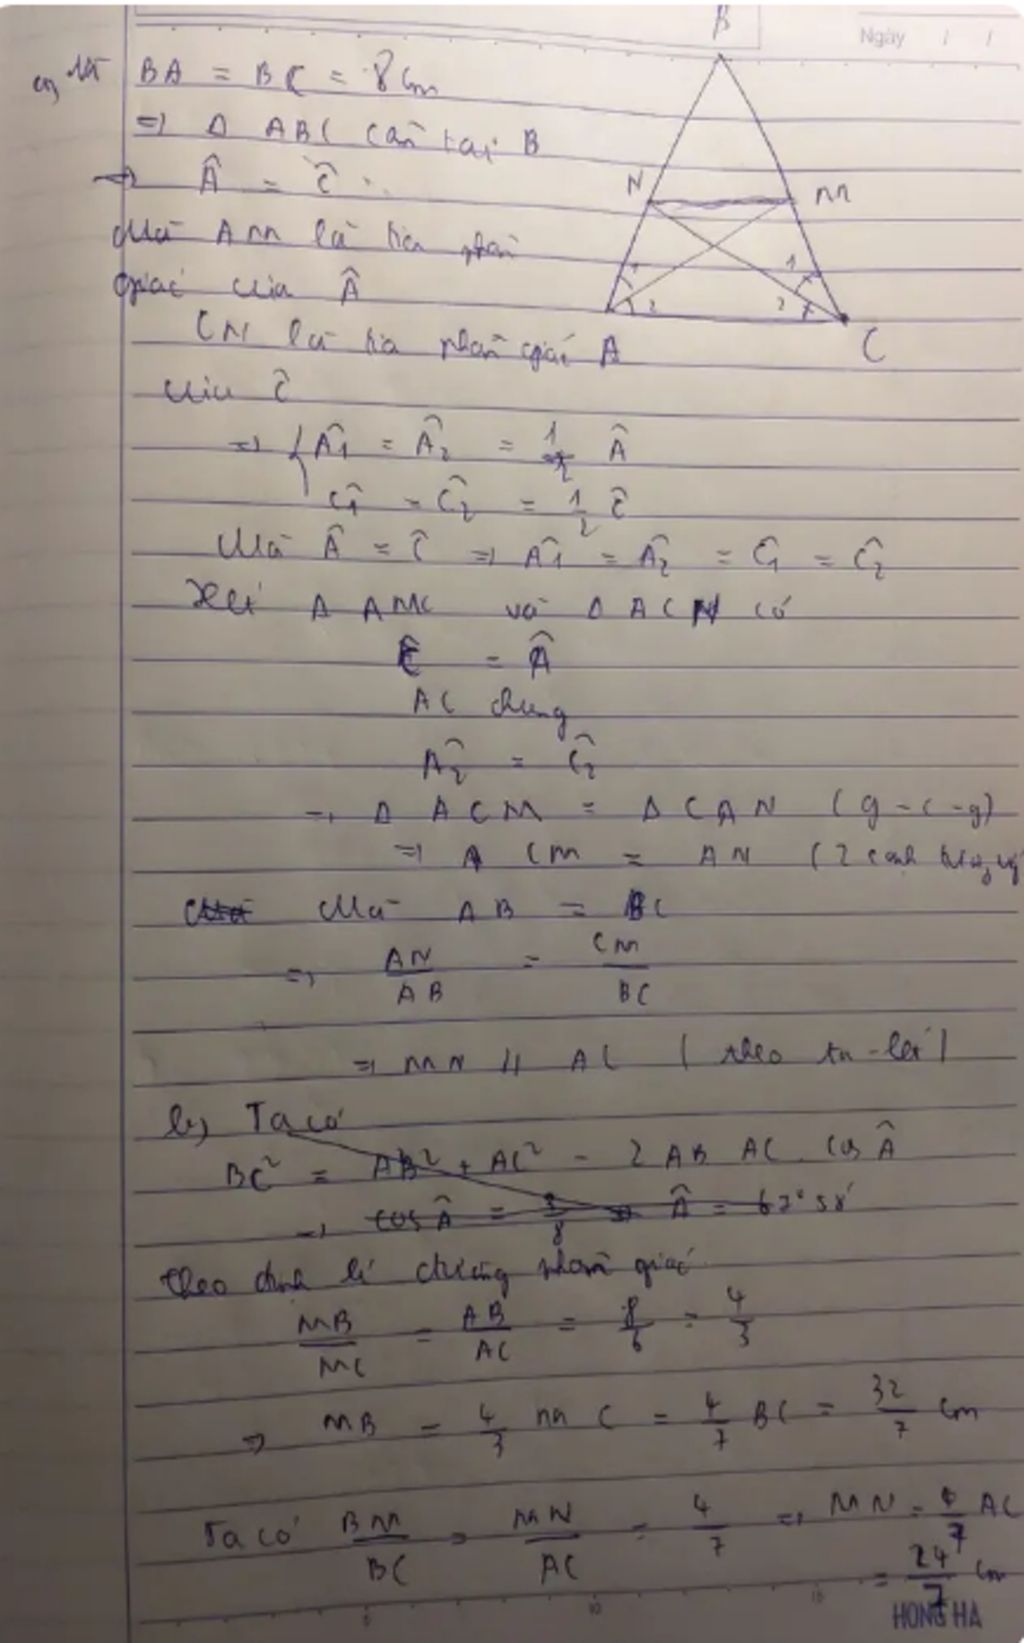 B
Ngày / /
a, Vì BA = BC = 8cm
=> Δ ABC cân tại B
=> Â = Ĉ
N M
Mà AM là tia phân
giác của Â
CN là tia phân giác A
C
của Ĉ
=> { Â1 = Â2 = 1/2 Â
Ĉ1 = Ĉ2 = 1/2 Ĉ
Mà Â = Ĉ => Â1 = Â2 = Ĉ1 = Ĉ2
Xét Δ AMC và Δ ACN có
Ĉ = Â
AC chung
Â2 = Ĉ2
=> Δ ACM = Δ CAN (g-c-g)
=> CM = AN (2 cạnh tương ứng
Mà AB = BC
=> AN/AB = CM/BC
=> MN // AC ( theo ta-lét )
b, Ta có
BC² = AB² + AC² - 2 AB AC . cos Â
=> cos Â = 3/8 => Â = 67°58'
theo định lí đường phân giác
MB/MC = AB/AC = 8/6 = 4/3
=> MB = 4/3 MC = 4/7 BC = 32/7 cm
Ta có BM/BC = MN/AC = 4/7 => MN = 4/7 AC
= 24/7 cm
HONG HA